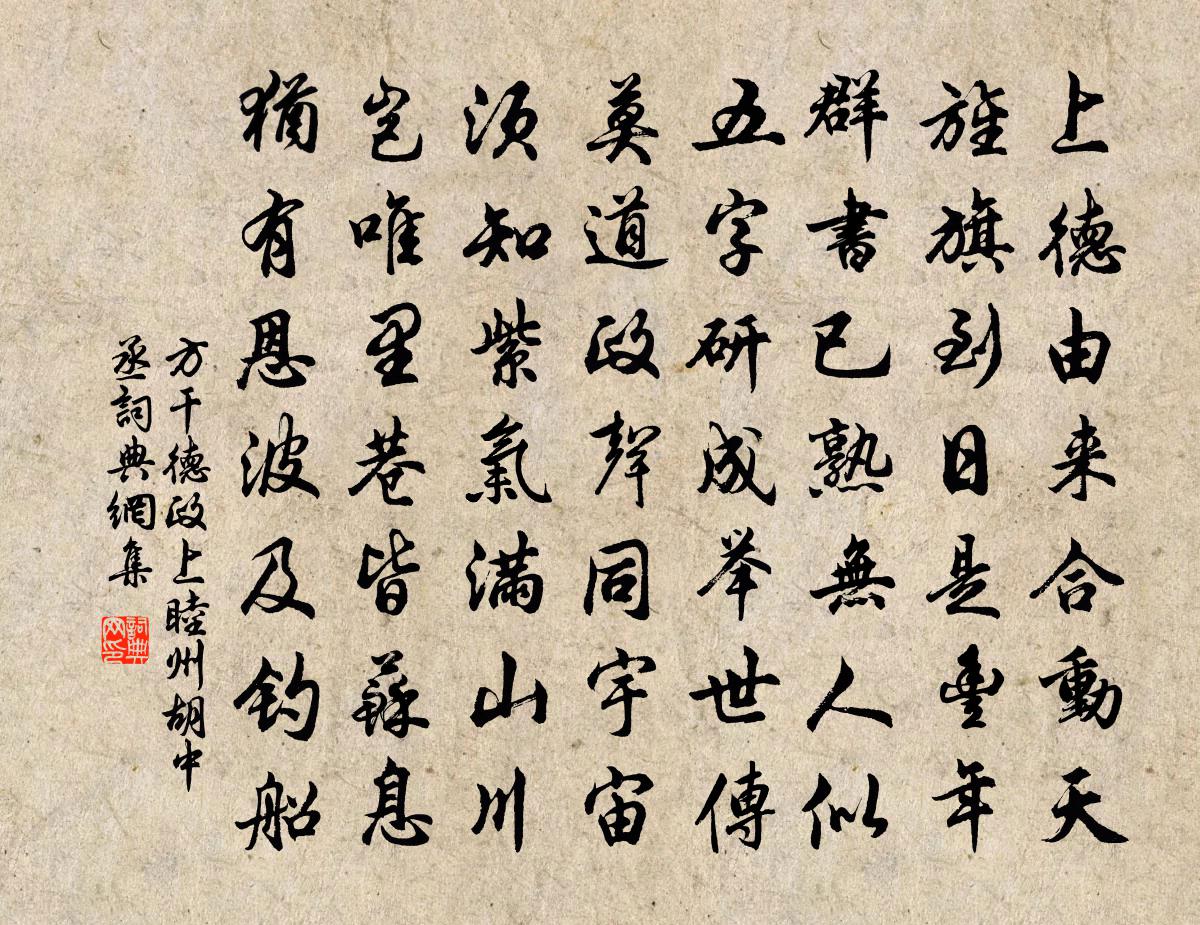 上德由来合動天
旌旗到日是豊年
群書已熟無人似
五字研成举世傳
莫道政聲同宇宙
須知紫氣滿山川
岂唯里巷皆蘇息
猶有恩波及釣船
方干德政上睦州胡中
丞詞典網集
詞典网印